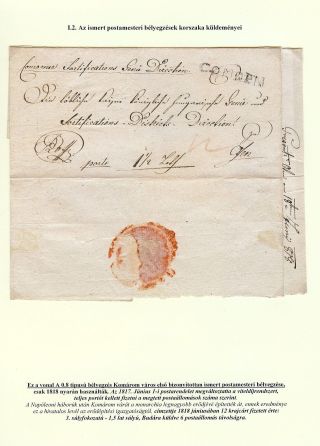 I.2. Az ismert postamesteri bélyegzések korszaka küldeményei
Comorner Fortifications Genie Direction.
COMORN
Die löbliche königliche Hungarische Genie und
Fortifications-Districts-Direction!
porto 1½ Loth Ofen
Ez a vonal A 0.8 típusú bélyegzés Komárom város első bizonyítottan ismert postamesteri bélyegzése,
csak 1818 nyarán használták. Az 1817. Június 1-i postarendelet megváltoztatta a viteldíjrendszert,
teljes portót kellett fizetni a megtett postaállomások száma szerint.
A Napóleoni háborúk után Komárom várát a monarchia legnagyobb erődjévé építették át, ennek eredménye
ez a hivatalos levél az erődépítési igazgatóságtól, címzettje 1818 júniusában 12 krajcárt fizetett érte:
3. súlyfokozatú - 1,5 lat súlyú, Budára küldve 6 postaállomás távolságra.